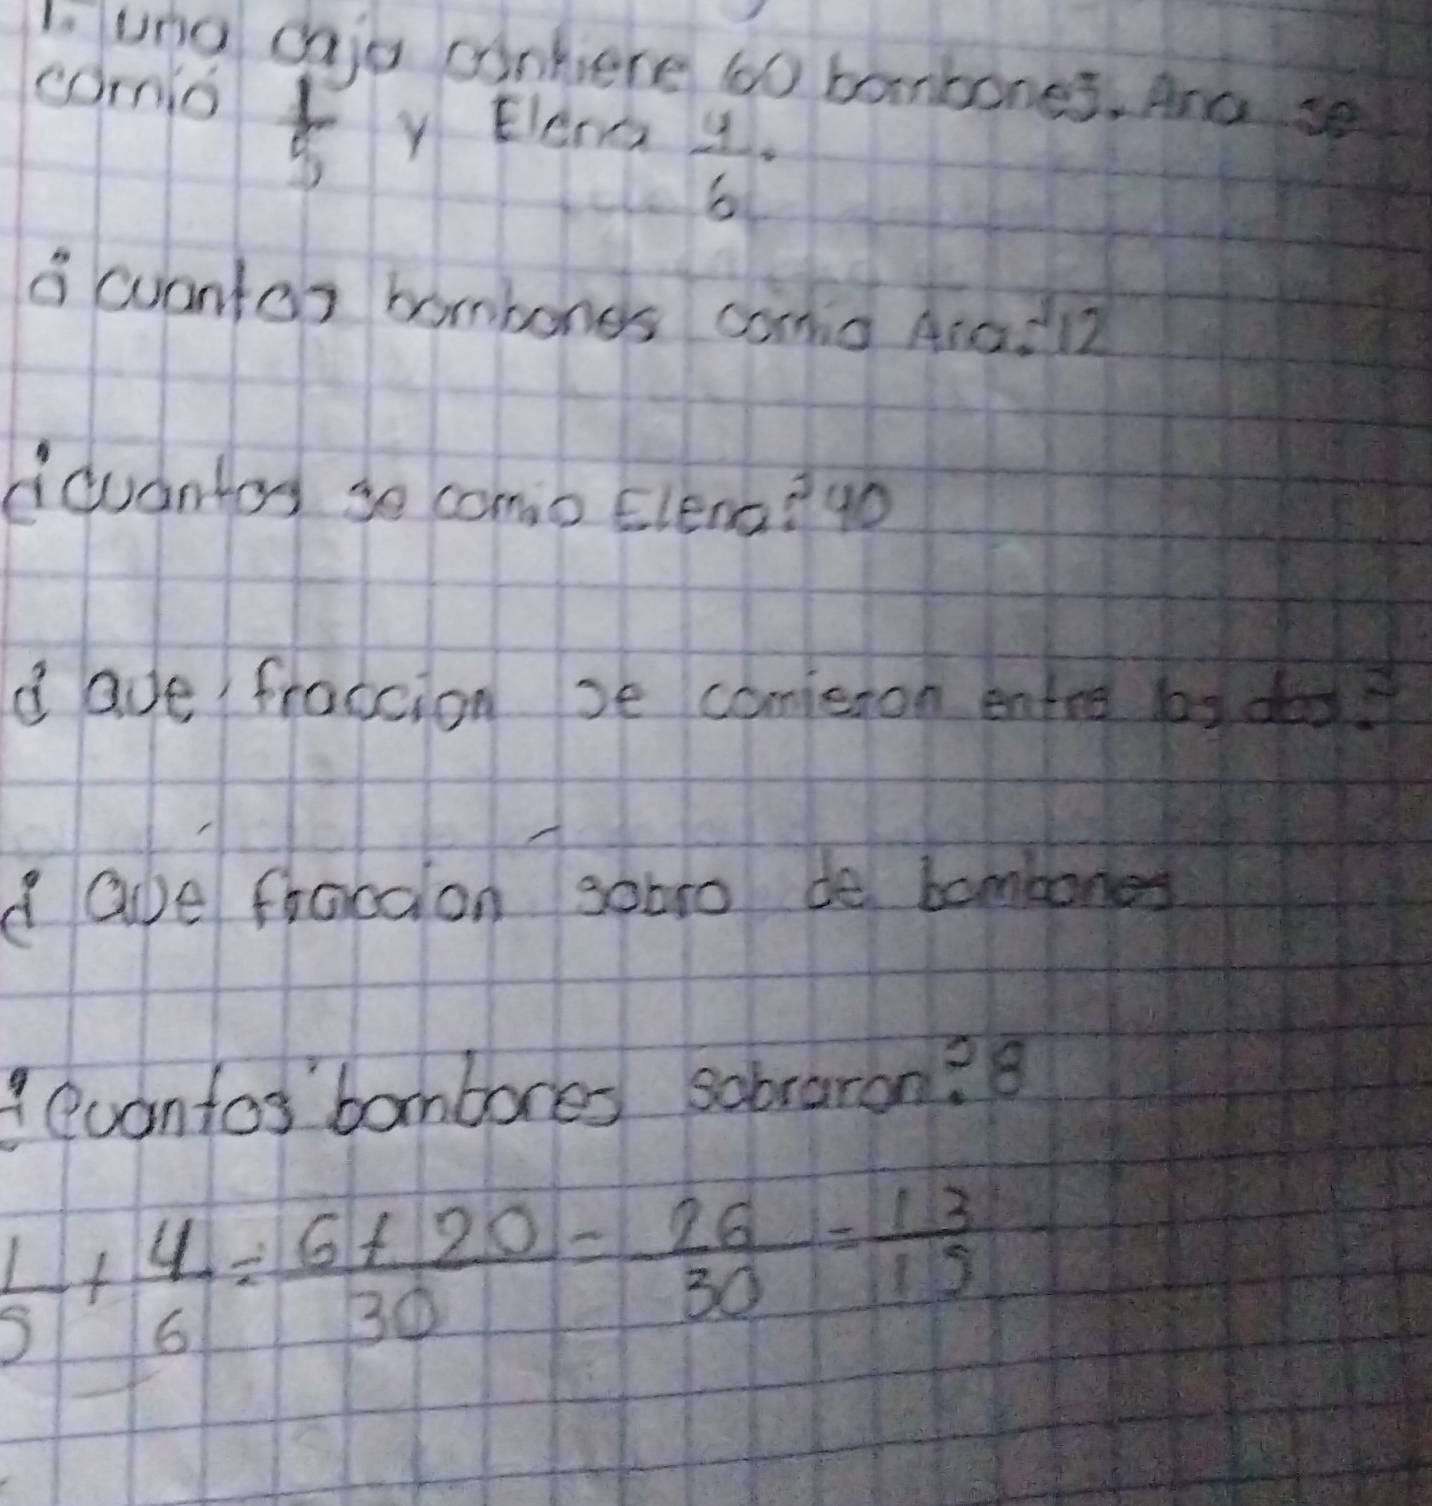 1. una caja contiene 60 bombones. Ana se
comió 1/5 y Elena 4/6.
¿cuantos bombones comio Ana? 12
¿cuantos se comio Elena? 40
¿Que fraccion se comieron entre las dos?
¿Que fraccion sobro de bombones
¿cuantos bombones sobraron? 8
1/5 + 4/6 = 6+20/30 = 26/30 = 13/15